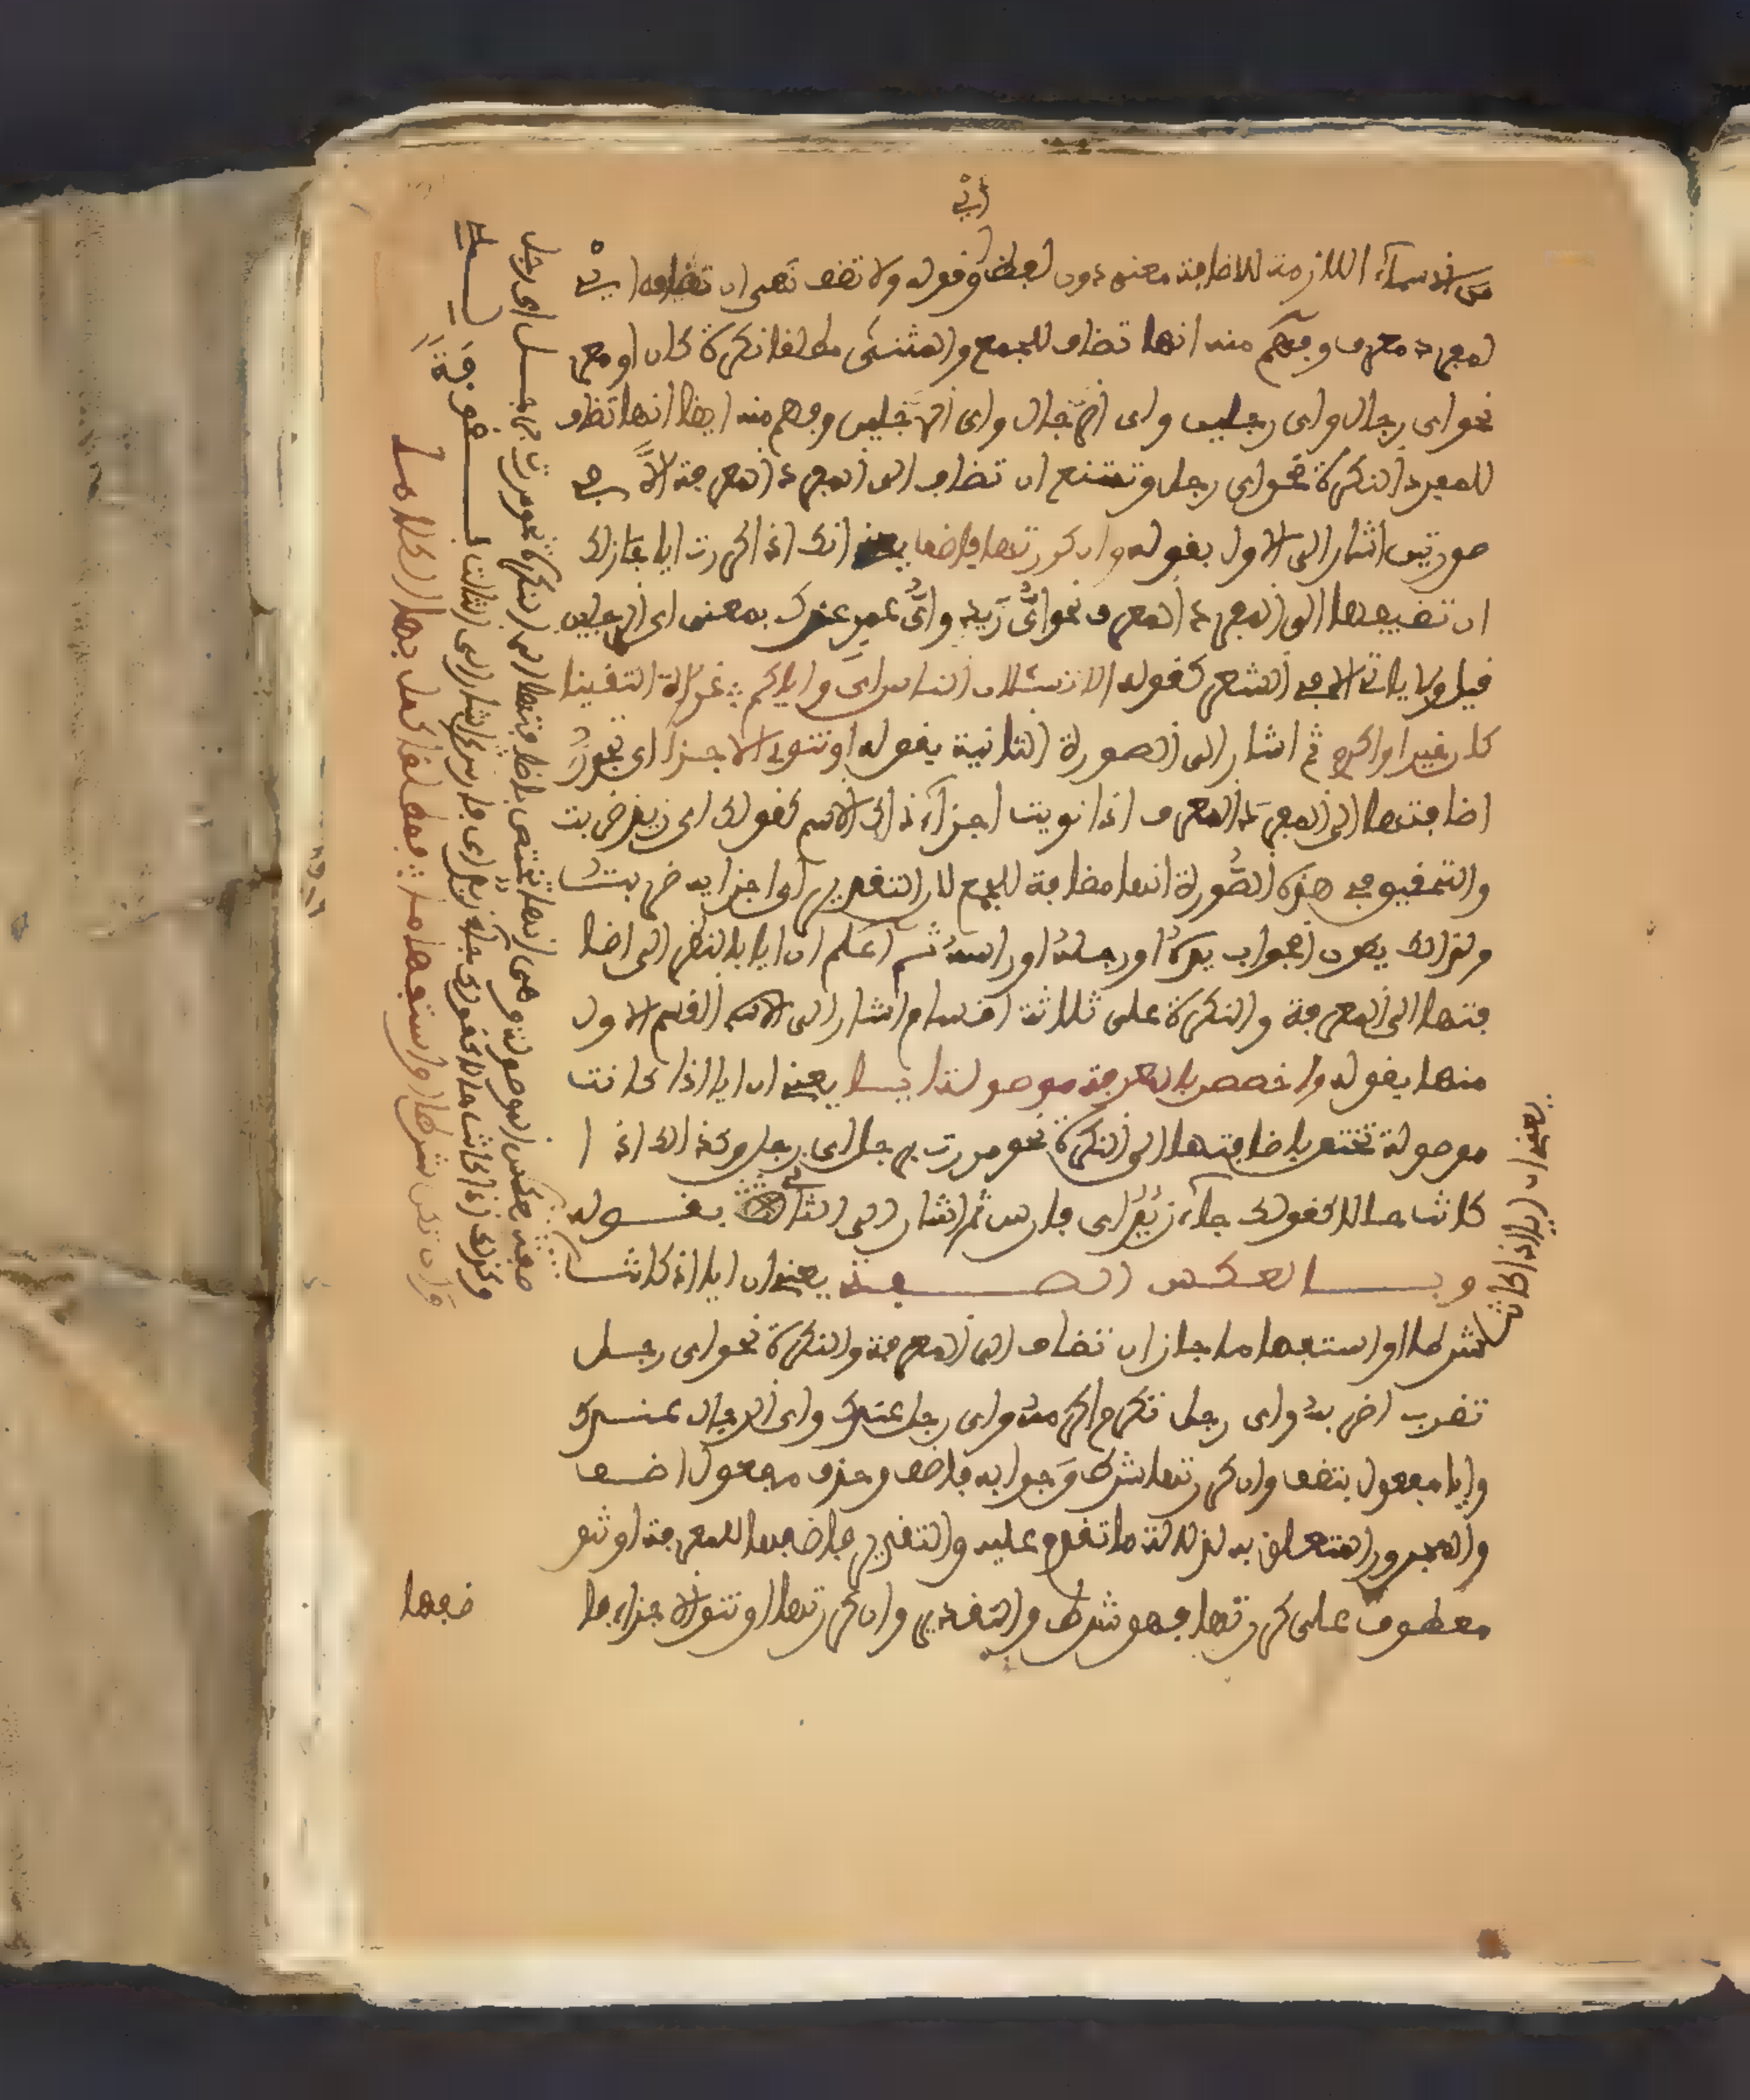 أي
من الاسماء اللازمة للاضافة معنى دون لفظ وقوله ولا تضف تعين ان تضاف اي
لمفرد معرف وفهم منه انها تضاف للجمع والمثنى مطلقا نكرة كان او معر
نحو اي رجال واي رجلين واي الرجال واي الرجلين وفهم منه ايضا انها تضاف
للمفرد النكرة نحو اي رجل وتمتنع ان تضاف الى المفرد المعرفة الا في
صورتين اشار الى الاول بقوله وان كررتها فاضف يعني انك اذا كررت ايا جاز لك
ان تضيفها الى المفرد المعرف نحو اي زيد واي عمر عندك بمعنى اي الرجلين
قيل ولا ياتي الا في الشعر كقوله الا تسئلان الناس اي وايكم غداة التقينا
كان خيرا واكرم ثم اشار الى الصورة الثانية بقوله او تنو الاجزا اي تجوز
اضافتها الى المفرد المعرف اذا نويت اجزاء ذلك الاسم كقولك اي زيد ضربت
والتحقيق في هذه الصورة انها مضافة للجمع لان التقدير اي اجزايه ضربت
ولذلك يكون الجواب يده او رجله او راسه ثم اعلم ان ايا بالنظر الى اضا
فتها الى المعرفة والنكرة على ثلاثة اقسام اشار الى القسم الاول
منها بقوله واخصص بالمعرفة موصولة ايا يعني ان ايا اذا كانت
موصولة تختص باضافتها الى النكرة نحو مررت برجل اي رجل وكذلك اذا
كانت حالا كقولك جاء زيد اي فارس ثم اشار الى الثاني بقوله
وبالعكس الصفة يعني ان ايا اذا كانت
شرطا او استفهاما جاز ان تضاف الى المعرفة والنكرة نحو اي رجل
تضرب اضربه واي رجل تكرم اكرمه واي رجل عندك واي الرجال عندك
وايا مفعول بتضف وان كررتها شرط وجوابه فاضف وحذف مفعول اضف
والمجرور المتعلق به لدلالة ما تقدم عليه والتقدير فاضفها للمعرفة او تنو
معطوف على كررتها فهو شرط والتقدير وان كررتها او تنو الاجزاء فا
ضفها
يعني ان ايا اذا كانت
صفة عكس الموصولة وهي انها تختص باضافتها الى النكرة نحو مررت برجل اي رجل
وكذلك اذا كانت حالا كقولك جاء زيد اي فارس ثم اشار الى الثالث بقوله
وان تكن شرطا او استفهاما فمطلقا كمل بها الكلاما